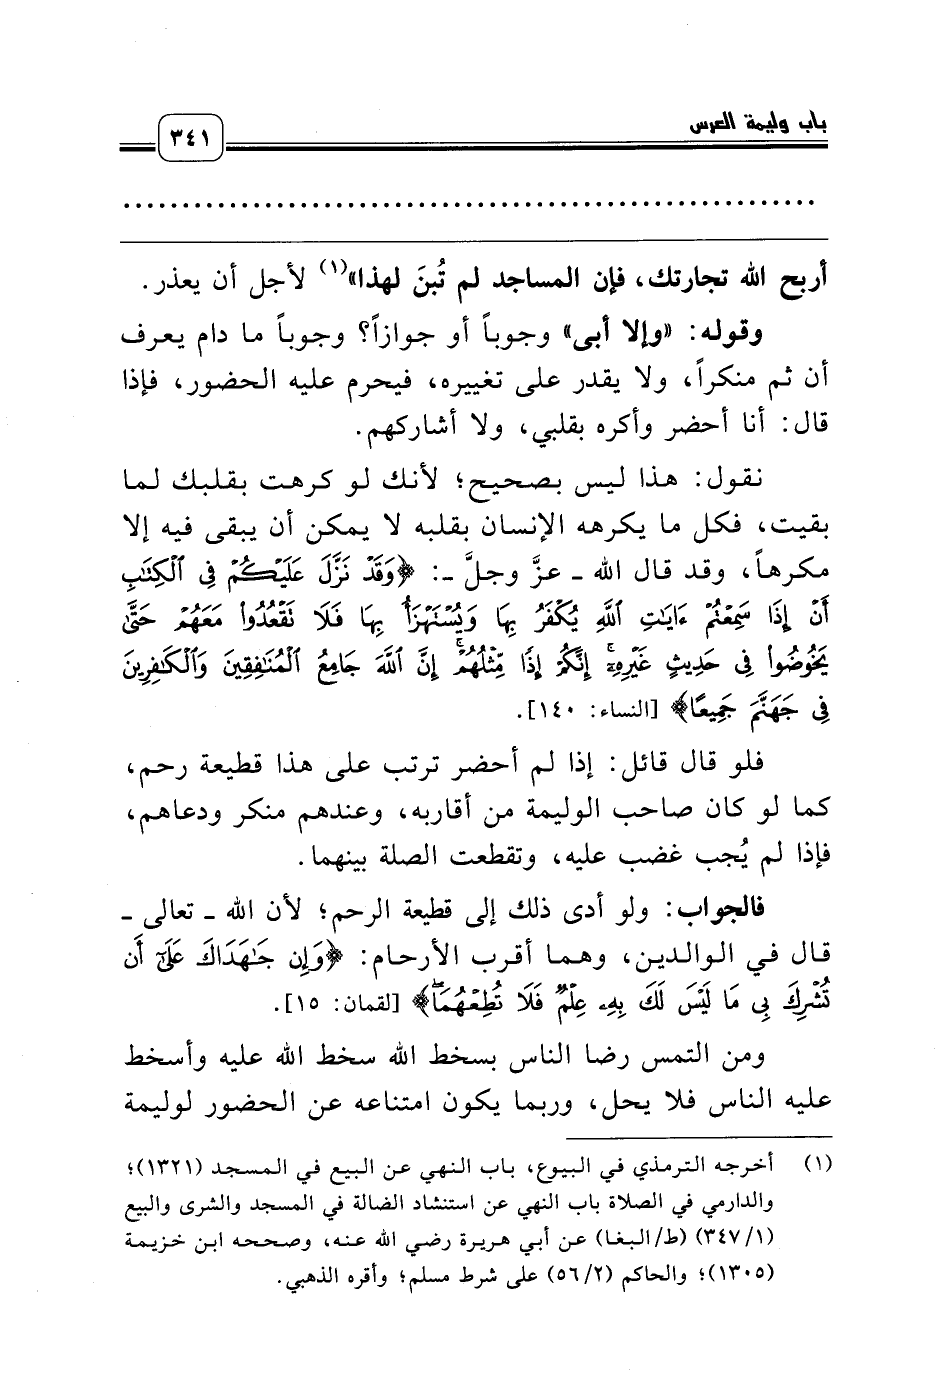 باب وليمة العرس
٣٤١
أربح الله تجارتك، فإن المساجد لم تُبنَ لهذا»(١) لأجل أن يعذر.
وقوله: «وإلا أبى» وجوباً أو جوازاً؟ وجوباً ما دام يعرف
أن ثم منكراً، ولا يقدر على تغييره، فيحرم عليه الحضور، فإذا
قال: أنا أحضر وأكره بقلبي، ولا أشاركهم.
نقول: هذا ليس بصحيح؛ لأنك لو كرهت بقلبك لما
بقيت، فكل ما يكرهه الإنسان بقلبه لا يمكن أن يبقى فيه إلا
مكرهاً، وقد قال الله ـ عزَّ وجلَّ ـ: ﴿وَقَدْ نَزَّلَ عَلَيْكُمْ فِي ٱلْكِتَٰبِ
أَنْ إِذَا سَمِعْتُمْ ءَايَٰتِ ٱللَّهِ يُكْفَرُ بِهَا وَيُسْتَهْزَأُ بِهَا فَلَا تَقْعُدُوا۟ مَعَهُمْ حَتَّىٰ
يَخُوضُوا۟ فِي حَدِيثٍ غَيْرِهِۦٓ ۚ إِنَّكُمْ إِذًا مِّثْلُهُمْ ۗ إِنَّ ٱللَّهَ جَامِعُ ٱلْمُنَٰفِقِينَ وَٱلْكَٰفِرِينَ
فِي جَهَنَّمَ جَمِيعًا﴾ [النساء: ١٤٠].
فلو قال قائل: إذا لم أحضر ترتب على هذا قطيعة رحم،
كما لو كان صاحب الوليمة من أقاربه، وعندهم منكر ودعاهم،
فإذا لم يُجب غضب عليه، وتقطعت الصلة بينهما.
فالجواب: ولو أدى ذلك إلى قطيعة الرحم؛ لأن الله ـ تعالى ـ
قال في الوالدين، وهما أقرب الأرحام: ﴿وَإِن جَٰهَدَاكَ عَلَىٰٓ أَن
تُشْرِكَ بِي مَا لَيْسَ لَكَ بِهِۦ عِلْمٌ فَلَا تُطِعْهُمَا﴾ [لقمان: ١٥].
ومن التمس رضا الناس بسخط الله سخط الله عليه وأسخط
عليه الناس فلا يحل، وربما يكون امتناعه عن الحضور لوليمة
(١) أخرجه الترمذي في البيوع، باب النهي عن البيع في المسجد (١٣٢١)؛
والدارمي في الصلاة باب النهي عن استنشاد الضالة في المسجد والشرى والبيع
(٣٤٧/١) (ط/البغا) عن أبي هريرة رضي الله عنه، وصححه ابن خزيمة
(١٣٠٥)؛ والحاكم (٥٦/٢) على شرط مسلم؛ وأقره الذهبي.